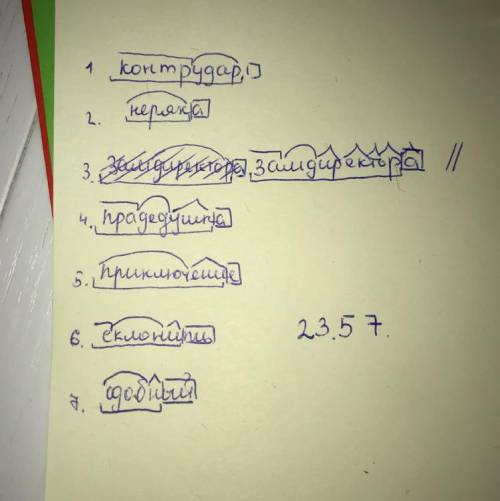 1 контрудар
2. неряха
3. замдиректора замдиректора //
4. прадедушка
5. приключение
6. склонить 23.57.
7. сдобный